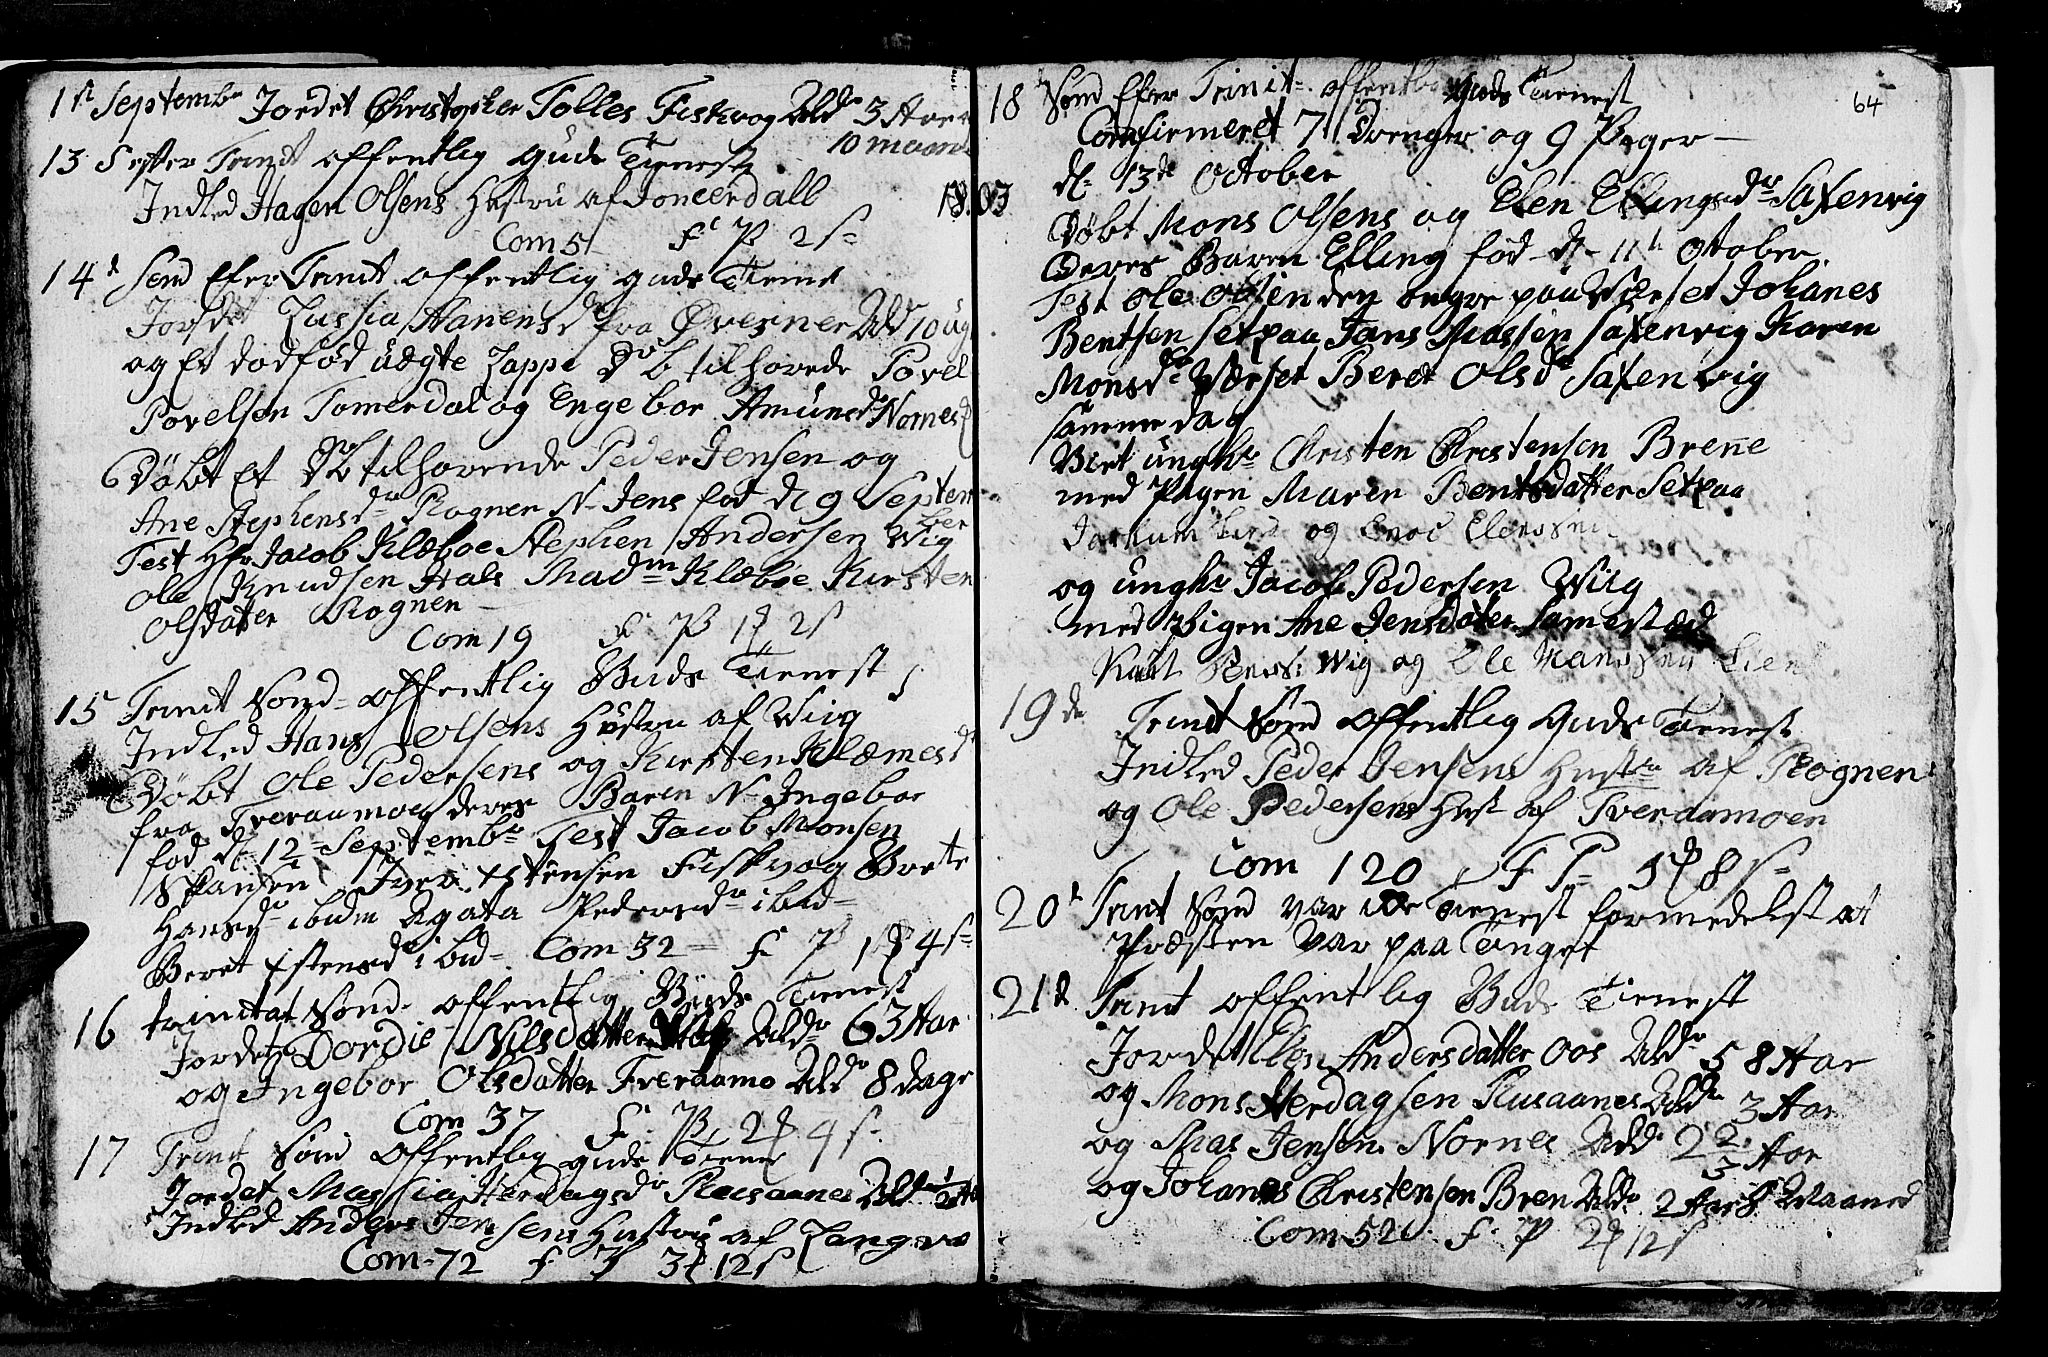 11t Septembr Jordet Christopher Tolles Fiskvog Aldr 3 Aar
10 maan
13 S efter Trinit offentlig guds Tienest
Indled Hagen Olsens Hustru af Joneerdall
Com 5 F P 2 s
14d Sønd Efer Trinit offentlig guds Tienest
Jordet Zussia Hanensd fra Øvernes Ald 10 ug
og Et dødfød uægte Lappe Db tilhørende Povel
Povelsen Tomerdal og Engebor Amunsdr Nornes
Døbt Et DB tilhørende Peder Jensen og
Ane Stephensdr Rognen N. Jens fød d 9 Septem
ber
Test Hr Jacob Klæboe Stephen Andersen Wig
Ole Knudsen Hals Madm Klæboe Kirsten
Olsdatter Rognen
Com 19 F P 1 2 s
15 Trinit Sønd offentlig Guds Tienest
Indled Hans Olsens Hustru af Wiig
Døbt Ole Pedersens og Kirsten Klæmesdr
fra Tveraamoe deres Baren N. Ingebor
fød d 12 Septembr Test Jacob Monsen
Skansen Iver Estensen Fiskvog Berte
Hansdr ibidm Agata Pedersdr ibid
Beret Estensdr ibid Com 32 F P 1 4 s
16 trinitat Sønd offentlig Guds Tienest
Jordet Dordie Nilsdatter Aldr 63 Aar
og Ingebor Olsdatter Tveraamo Aldr 8 dage
Com 37 F P 2 4 s
17 Trinit Sønd offentlig guds Tienest
Jordet Massia Herdagsdr Rusaanes Aldr 1/2 Aar
Indled Anders Jensens Hustru af Langva
Com 72 F P 3 12 s
1803
64
18 Sønd Efter Trinit offentlig Guds Tienest
Confirmeret 7 Drenger og 9 Piger
d 13de October
Døbt Mons Olsens og Elen Ellingsdr Saxenvig
Deres Baren Elling fød d 11te Otober
Test Ole Olsen den øngre paa Værset Johanes
Bentsen Setpaa Hans Massen Saxenvig Karen
Monsdr Værset Beret Olsdr Saxenvig
samme dag
Viet ungkr Christen Christensen Brene
med Pigen Maren Bentsdatter Setpaa
og Enoc
og ungkr Jacob Pedersen Wiig
med Pigen Ane Jensdater samested
Wig og Ole Hanssen
19de Trinit Sønd offentlig Guds Tienest
Indled Peder Jensens Hustru af Rognen
og Ole Pedersens Hust af Tveraamoen
Com 120 F P 5 8 s
20t Trinit Sønd var icke Tienest formedelst at
Præsten var paa Tinget
21d Trinit offentlig Guds Tienest
Jordet Elen Andersdatter Oos Aldr 58 Aar
og Mons Herdagsen Rusaanes Aldr 3 Aar
og Mas Jensen Nornes Aldr 2 2/3 Aar
og Johanes Christensen Bren Aldr 2 Aar 8 Maaned
Com 52 F P 2 12 s